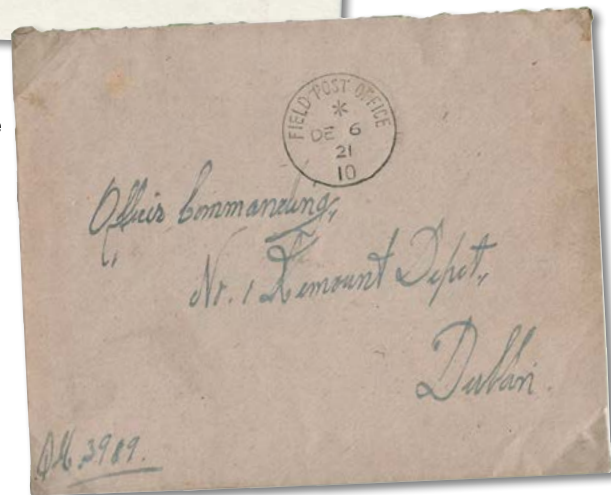 FIELD POST OFFICE
*
DE 6
21
10
Officer Commanding,
No. 1 Remount Depot,
Dublin.
3989.
e